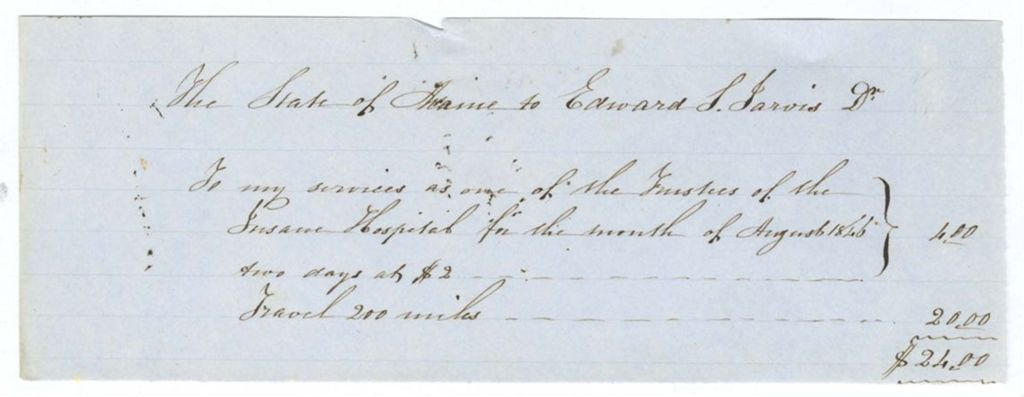 The State of Maine to Edward S. Jarvis Dr
To my services as one of the Trustees of the
Insane Hospital for the month of August 1846 4.00
two days at $2
Travel 200 miles 20.00
$24.00